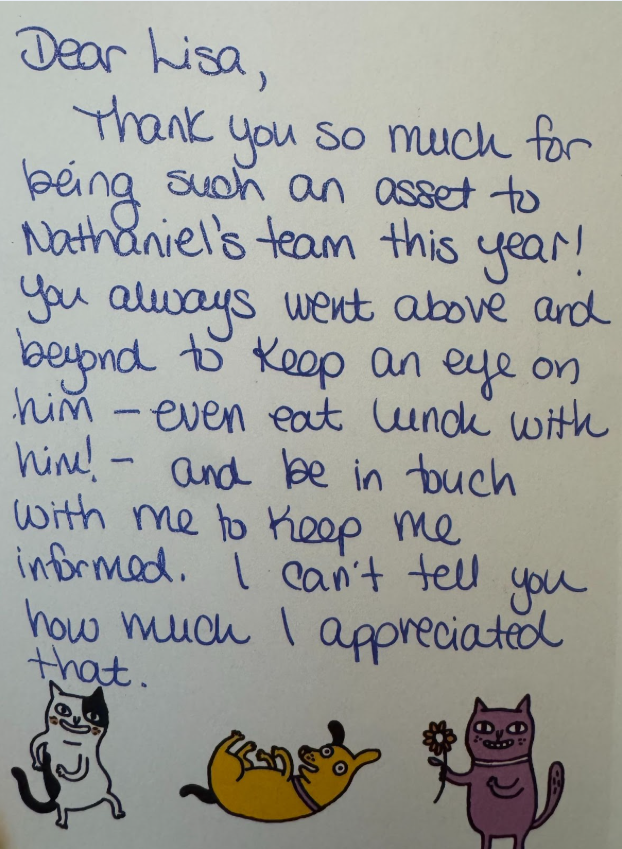 Dear Lisa,
Thank you so much for
being such an asset to
Nathaniel's team this year!
You always went above and
beyond to keep an eye on
him - even eat lunch with
him! - and be in touch
with me to keep me
informed. I can't tell you
how much I appreciated
that.